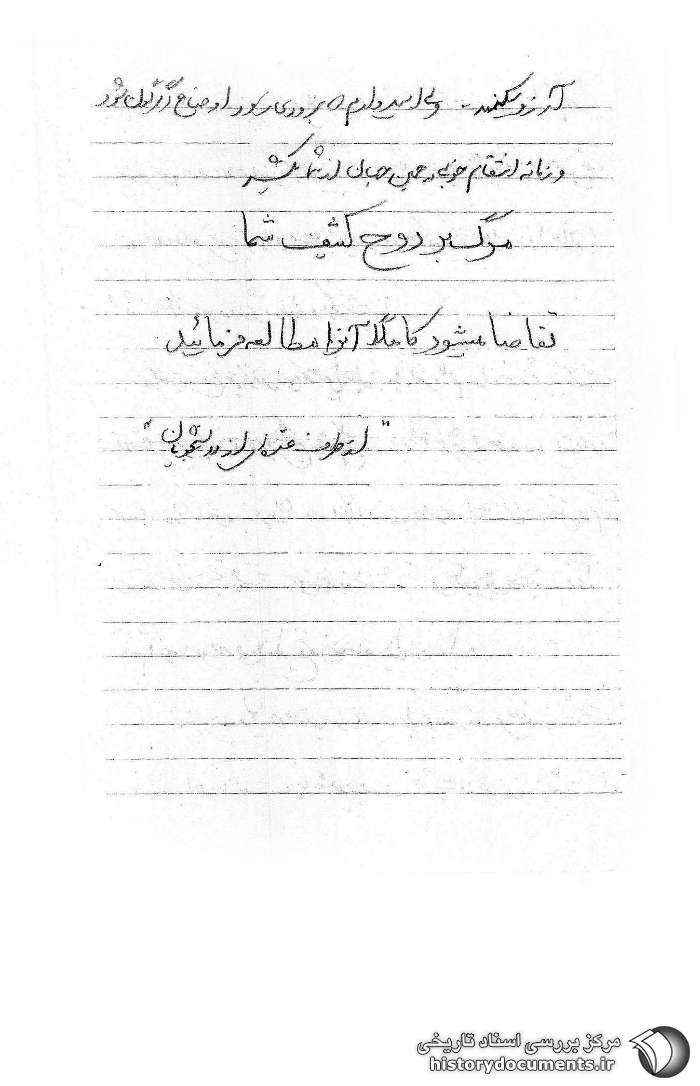 آرزو میکنند - ولی امیدوارم بزودی زود اوضاع دگرگون شود
و زمانه انتقام خوبی در همین جهان از شما بکشد
مرگ بر روح کثیف شما
تقاضا میشود کاملاً آنرا مطالعه فرمائید
"از طرف عده‌ای از دانشجویان"
مرکز بررسی اسناد تاریخی
historydocuments.ir